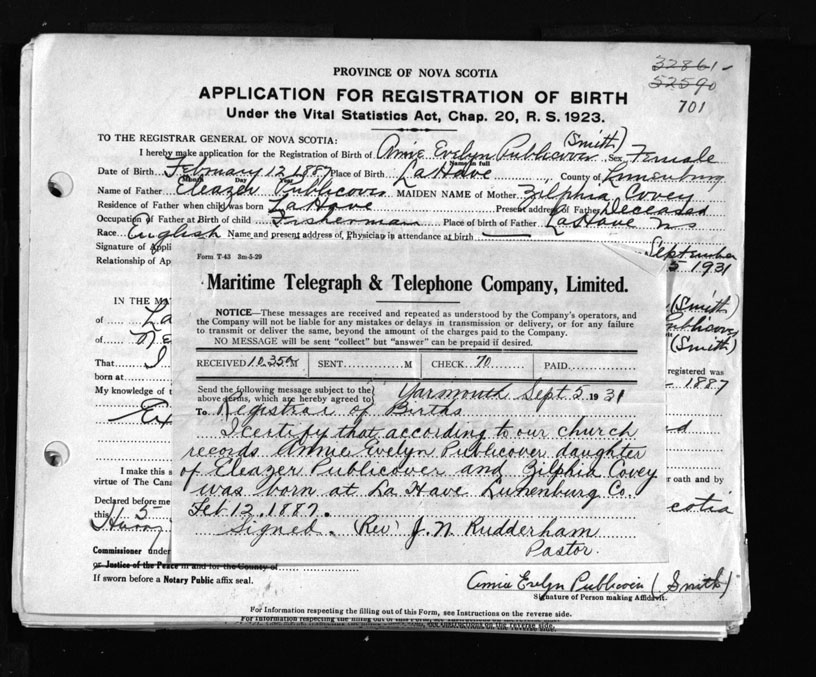 32861-
52590
701
PROVINCE OF NOVA SCOTIA
APPLICATION FOR REGISTRATION OF BIRTH
Under the Vital Statistics Act, Chap. 20, R. S. 1923.
TO THE REGISTRAR GENERAL OF NOVA SCOTIA:
(Smith)
I hereby make application for the Registration of Birth of Annie Evelyn Publicover Sex Female
Name in full
Date of Birth February 12 1887 Place of Birth LaHave, County of Lunenburg
Month Day Year
Name of Father Eleazer Publicover MAIDEN NAME of Mother Zilphia Covey
Residence of Father when child was born LaHave Present address of Father Deceased
Occupation of Father at Birth of child Fisherman Place of birth of Father LaHave NS
Race English Name and present address of Physician in attendance at birth
Signature of Appli September
Relationship of Ap 5 1931
Form T-43 3m-5-29
Maritime Telegraph & Telephone Company, Limited.
NOTICE—These messages are received and repeated as understood by the Company's operators, and
the Company will not be liable for any mistakes or delays in transmission or delivery, or for any failure
to transmit or deliver the same, beyond the amount of the charges paid to the Company.
NO MESSAGE will be sent "collect" but "answer" can be prepaid if desired.
RECEIVED 10.35a M SENT M CHECK 70 PAID
Send the following message subject to the
above terms, which are hereby agreed to
Yarmouth Sept 5 1931
To Registrar of Births
I certify that according to our church
records Annie Evelyn Publicover daughter
of Eleazer Publicover and Zilphia Covey
was born at La Have Lunenburg Co.
Feb 12. 1887.
Signed. (Rev) J. N Rudderham
Pastor.
IN THE MA (Smith)
of La Publicover
of (Smith)
That I registered was
born at 1887
My knowledge of t
I make this s er oath and by
virtue of The Cana
Declared before me cotia
this 15
Commissioner under
or Justice of the Peace in and for the County of
If sworn before a Notary Public affix seal.
Annie Evelyn Publicover (Smith)
Signature of Person making Affidavit.
For Information respecting the filling out of this Form, see Instructions on the reverse side.
For Information respecting the filling out of this Form, see Instructions on the reverse side.